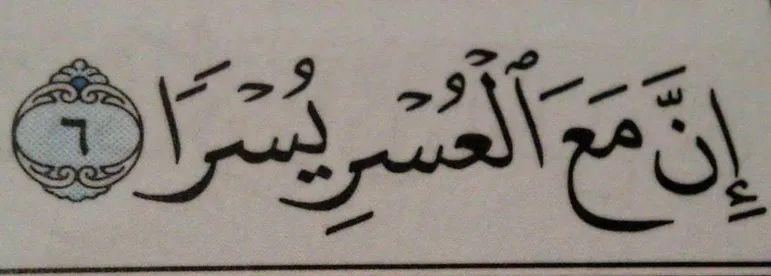 إِنَّ مَعَ ٱلْعُسْرِ يُسْرًا ٦